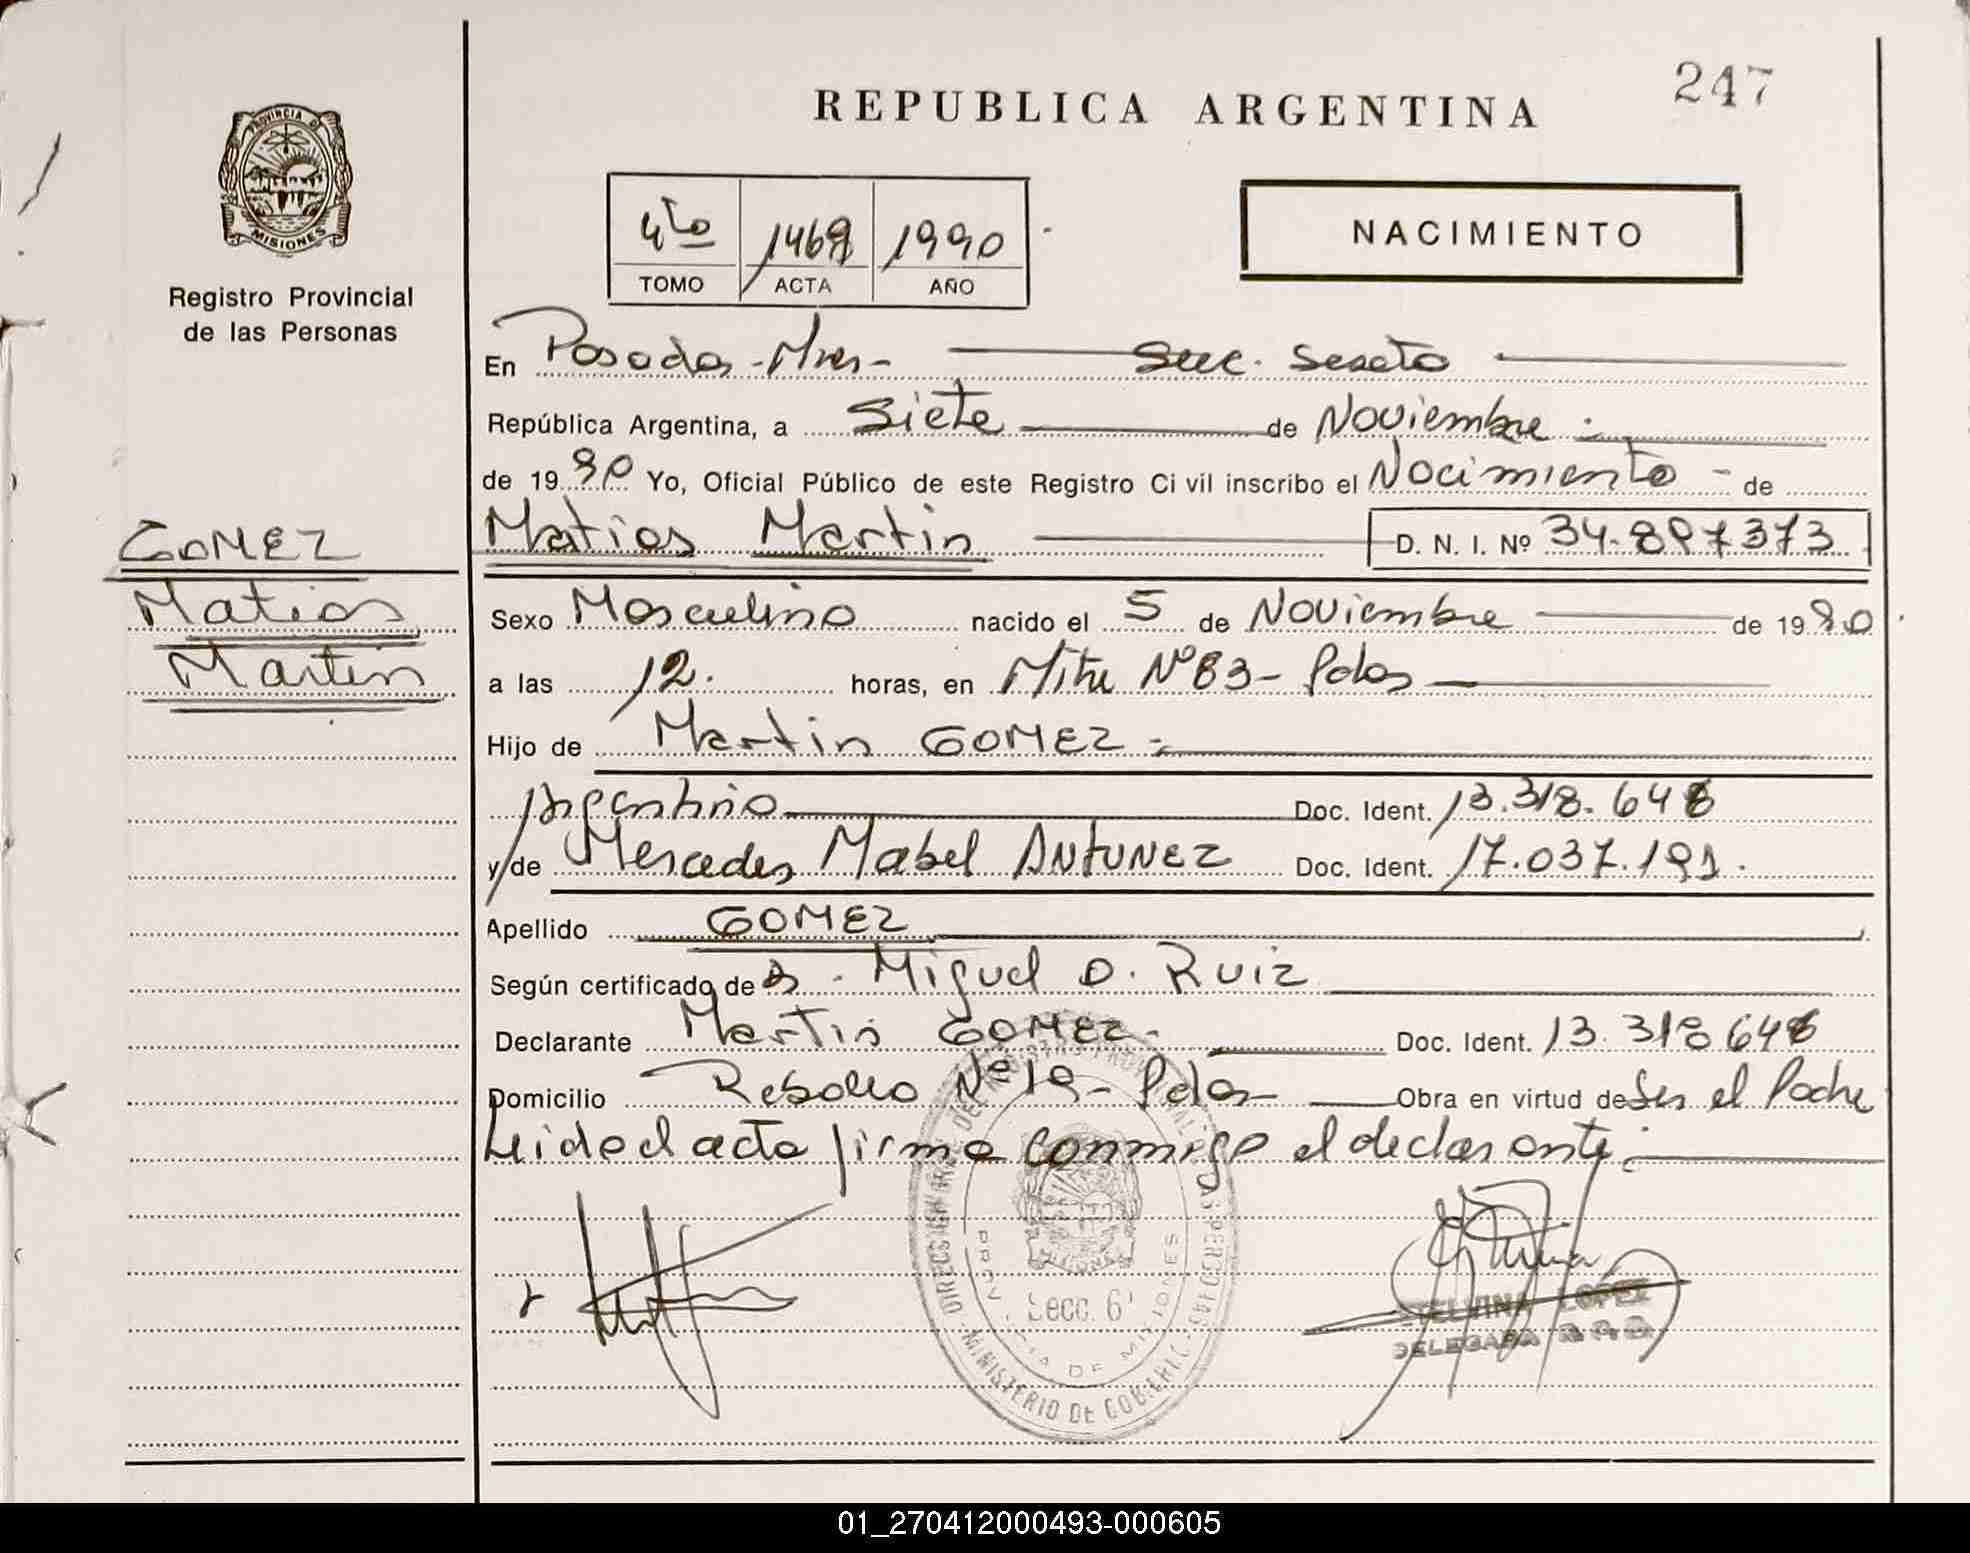 247
REPUBLICA ARGENTINA
PROVINCIA DE
MISIONES
Registro Provincial
de las Personas
4to 1990
TOMO ACTA AÑO
NACIMIENTO
En Posadas - Mnes - Secc. Sexta
República Argentina, a Siete de Noviembre
de 1990 Yo, Oficial Público de este Registro Civil inscribo el Nacimiento - de
GOMEZ
Matias
Martin
Matias Martin D. N. I. Nº 34.897373
Sexo Masculino nacido el 5 de Noviembre de 1990
a las 12. horas, en Mitre Nº 83 - Pdas
Hijo de Martin GOMEZ
Argentino Doc. Ident. 13.318.648
y de Mercedes Mabel ANTUNEZ Doc. Ident. 17.037.191.
Apellido GOMEZ
Según certificado de Miguel O. Ruiz
Declarante Martin GOMEZ - Doc. Ident. 13.318.648
Domicilio Nº 19 - Pdas Obra en virtud de Ser el Padre
Leida el acta firma conmigo el declarante
Secc. 6ª
PROVINCIA DE MISIONES
MINISTERIO DE GOBIERNO
TELVINA LOPEZ
DELEGADA
01_270412000493-000605